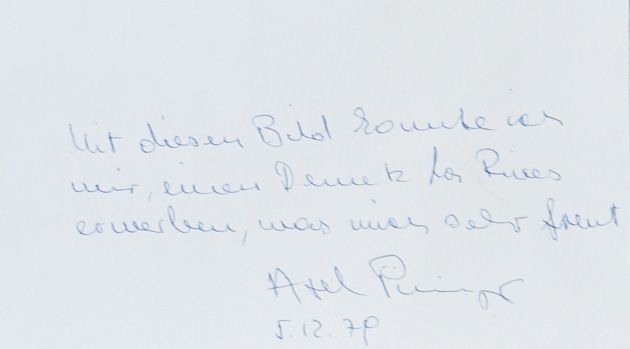 Mit diesem Bild konnte ich
mir, einen
erwerben, was mich sehr freut
Axel
5.12.79